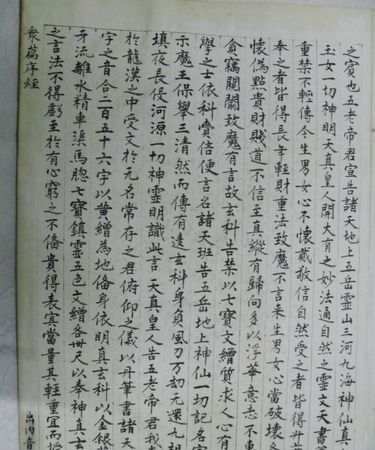 之賓也五老帝君宣告諸天地上五岳靈山三河九海神仙真
玉女一切神明天真皇人開大有之妙法通自然之靈文天書
重禁不輕傳今生男女心不懷戴敬信自然受之者皆得升
奉之者皆得長年輕財重法致魔不言來生男女心當破壞
懷偽點貴財賤道不信至真縱有歸向多以浮華意志不專
貪竊開關致魔有言故玄科告禁以七寶文繒質求人心有
學之士依科賫信便言名諸天班告五岳地上神仙一切記名
示魔王保舉三清然而傳有違玄科身負風刀万劫无還九祖
填夜長役河源一切神靈明識此言天真皇人告五老帝君我
於龍漢之中受文於元名常存之君俯仰之儀以丹筆書諸天
字之音合二百五十六字以黃繒為地俻身依明真玄科以金
牙流離水精車渠馬瑙七寶鎮靈五色文繒各卌尺以奉神真
之言法不得虧至於有心窮之不俻貴得表寘當量其輕重宜而
眾篇序經
出内音